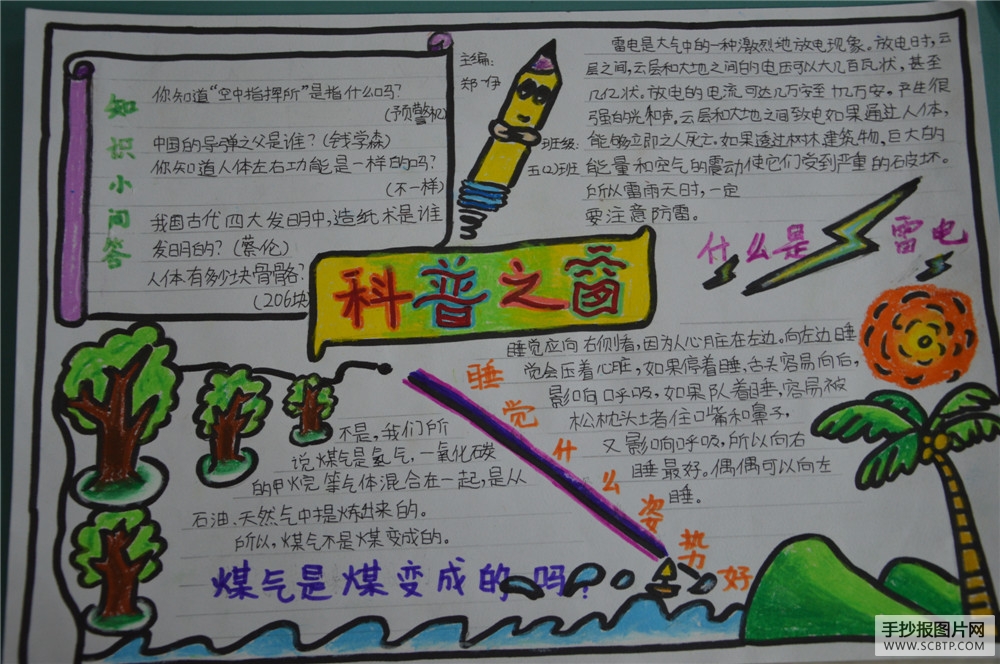 知识小问答
你知道“空中指挥所”是指什么吗?
(预警机)
中国的导弹之父是谁?(钱学森)
你知道人体左右功能是一样的吗?
(不一样)
我国古代四大发明中,造纸术是谁
发明的?(蔡伦)
人体有多少块骨骼?
(206块
主编:
郑伊
班级:
五(2)班
雷电是大气中的一种激烈地放电现象。放电时,云
层之间,云层和大地之间的电压可以大几百瓦状,甚至
几亿状。放电的电流可达几万安至十几万安。产生很
强的光和声。云层和大地之间致电如果通过人体,
能够立即之人死亡。如果透过树林建筑物,巨大的
能量和空气的震动使它们受到严重的破坏。
所以雷雨天时,一定
要注意防雷。
什么是雷电
科普之窗
睡觉应向右侧者,因为人心脏在左边。向左边睡
觉会压着心脏,如果停着睡,舌头容易向后,
影响呼吸,如果队着睡,容易被
松枕头堵住口嘴和鼻子,
又影响呼吸,所以向右
睡最好。偶偶可以向左
睡。
睡觉什么姿势好
不是,我们所
说煤气是氢气,一氧化碳
的甲烷等气体混合在一起,是从
石油、天然气中提炼出来的。
所以,煤气不是煤变成的。
煤气是煤变成的吗?
手抄报图片网
WWW.SCBTP.COM